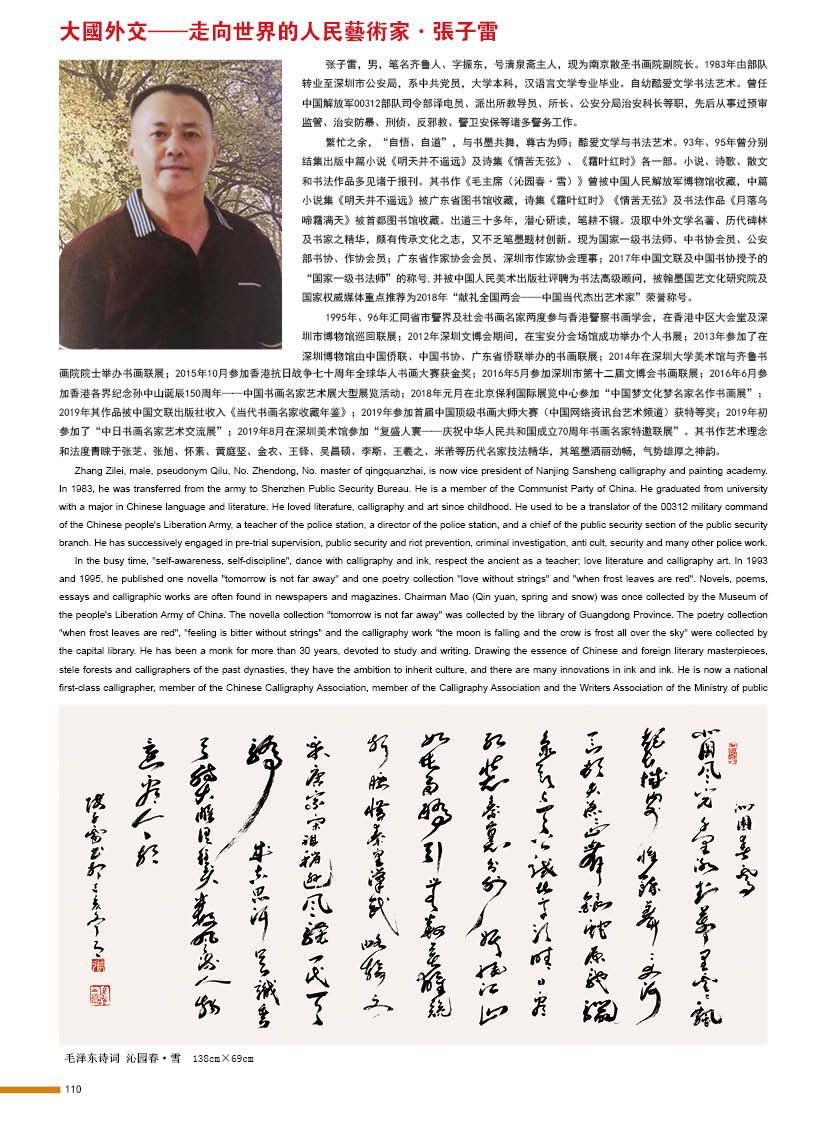 大國外交——走向世界的人民藝術家·張子雷
张子雷，男，笔名齐鲁人、字振东，号清泉斋主人，现为南京散圣书画院副院长。1983年由部队
转业至深圳市公安局，系中共党员，大学本科，汉语言文学专业毕业。自幼酷爱文学书法艺术。曾任
中国解放军00312部队司令部译电员、派出所教导员、所长、公安分局治安科长等职，先后从事过预审
监管、治安防暴、刑侦、反邪教、警卫安保等诸多警务工作。
繁忙之余，“自悟、自道”，与书墨共舞，尊古为师；酷爱文学与书法艺术。93年、95年曾分别
结集出版中篇小说《明天并不遥远》及诗集《情苦无弦》、《霜叶红时》各一部。小说、诗歌、散文
和书法作品多见诸于报刊。其书作《毛主席（沁园春·雪）》曾被中国人民解放军博物馆收藏，中篇
小说集《明天并不遥远》被广东省图书馆收藏，诗集《霜叶红时》《情苦无弦》及书法作品《月落乌
啼霜满天》被首都图书馆收藏。出道三十多年，潜心研读，笔耕不辍。汲取中外文学名著、历代碑林
及书家之精华，颇有传承文化之志，又不乏笔墨题材创新。现为国家一级书法师、中书协会员、公安
部书协、作协会员；广东省作家协会会员、深圳市作家协会理事；2017年中国文联及中国书协授予的
“国家一级书法师”的称号,并被中国人民美术出版社评聘为书法高级顾问，被翰墨国艺文化研究院及
国家权威媒体重点推荐为2018年“献礼全国两会——中国当代杰出艺术家”荣誉称号。
1995年、96年汇同省市警界及社会书画名家两度参与香港警察书画学会，在香港中区大会堂及深
圳市博物馆巡回联展；2012年深圳文博会期间，在宝安分会场馆成功举办个人书展；2013年参加了在
深圳博物馆由中国侨联、中国书协、广东省侨联举办的书画联展；2014年在深圳大学美术馆与齐鲁书
画院院士举办书画联展；2015年10月参加香港抗日战争七十周年全球华人书画大赛获金奖；2016年5月参加深圳市第十二届文博会书画联展；2016年6月参
加香港各界纪念孙中山诞辰150周年——中国书画名家艺术展大型展览活动；2018年元月在北京保利国际展览中心参加“中国梦文化梦名家名作书画展”；
2019年其作品被中国文联出版社收入《当代书画名家收藏年鉴》；2019年参加首届中国顶级书画大师大赛（中国网络资讯台艺术频道）获特等奖；2019年初
参加了“中日书画名家艺术交流展”；2019年8月在深圳美术馆参加“复盛人寰——庆祝中华人民共和国成立70周年书画名家特邀联展”。其书作艺术理念
和法度青睐于张芝、张旭、怀素、黄庭坚、金农、王铎、吴昌硕、李斯、王羲之、米芾等历代名家技法精华，其笔墨洒丽劲畅，气势雄厚之神韵。
Zhang Zilei, male, pseudonym Qilu, No. Zhendong, No. master of qingquanzhai, is now vice president of Nanjing Sansheng calligraphy and painting academy.
In 1983, he was transferred from the army to Shenzhen Public Security Bureau. He is a member of the Communist Party of China. He graduated from university
with a major in Chinese language and literature. He loved literature, calligraphy and art since childhood. He used to be a translator of the 00312 military command
of the Chinese people's Liberation Army, a teacher of the police station, a director of the police station, and a chief of the public security section of the public security
branch. He has successively engaged in pre-trial supervision, public security and riot prevention, criminal investigation, anti cult, security and many other police work.
In the busy time, "self-awareness, self-discipline", dance with calligraphy and ink, respect the ancient as a teacher; love literature and calligraphy art. In 1993
and 1995, he published one novella "tomorrow is not far away" and one poetry collection "love without strings" and "when frost leaves are red". Novels, poems,
essays and calligraphic works are often found in newspapers and magazines. Chairman Mao (Qin yuan, spring and snow) was once collected by the Museum of
the people's Liberation Army of China. The novella collection "tomorrow is not far away" was collected by the library of Guangdong Province. The poetry collection
"when frost leaves are red", "feeling is bitter without strings" and the calligraphy work "the moon is falling and the crow is frost all over the sky" were collected by
the capital library. He has been a monk for more than 30 years, devoted to study and writing. Drawing the essence of Chinese and foreign literary masterpieces,
stele forests and calligraphers of the past dynasties, they have the ambition to inherit culture, and there are many innovations in ink and ink. He is now a national
first-class calligrapher, member of the Chinese Calligraphy Association, member of the Calligraphy Association and the Writers Association of the Ministry of public
沁園春雪
北國風光千里冰封萬里雪飄
毛泽东诗词 沁园春·雪 138cm×69cm
110